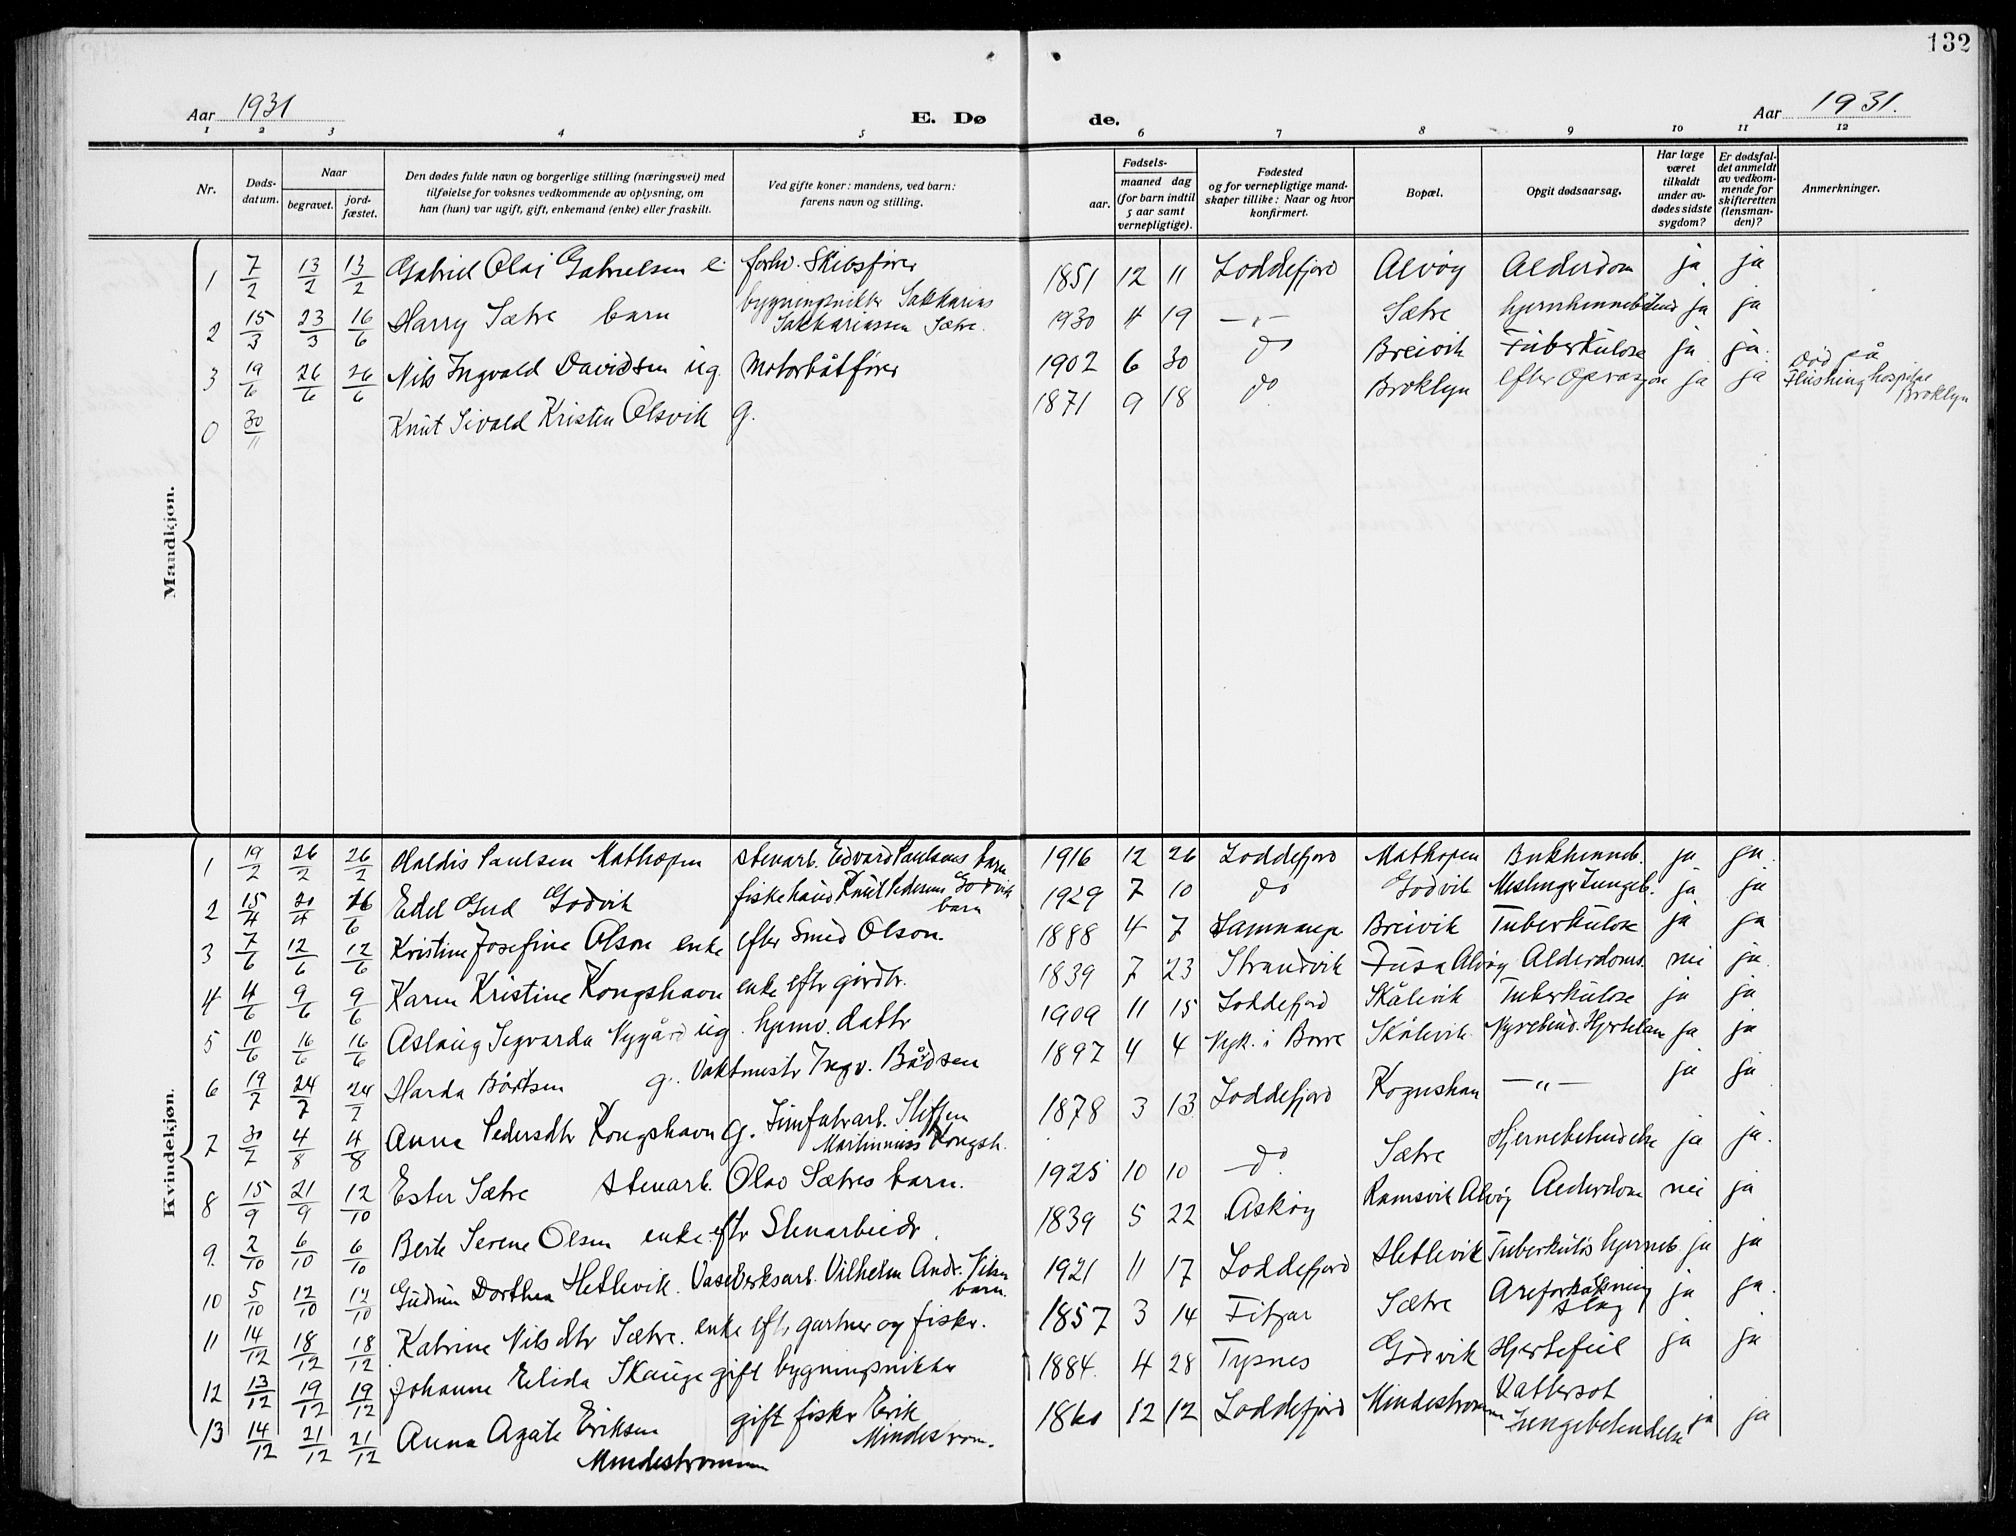 132
Aar 1931 E. Døde. Aar 1931.
1 2 3 4 5 6 7 8 9 10 11 12
Nr. | Døds-datum. | Naar begravet. | jord-fæstet. | Den dødes fulde navn og borgerlige stilling (næringsvei) med tilføielse for voksnes vedkommende av oplysning, om han (hun) var ugift, gift, enkemand (enke) eller fraskilt. | Ved gifte koner: mandens, ved barn: farens navn og stilling. | Fødsels- aar. | maaned dag (for barn indtil 5 aar samt vernepligtige). | Fødested og for vernepligtige mandskaper tillike: Naar og hvor konfirmert. | Bopæl. | Opgit dødsaarsag. | Har læge været tilkaldt under avdødes sidste sygdom? | Er dødsfaldet anmeldt av vedkommende for skifteretten (lensmanden)? | Anmerkninger.
Mandkjøn.
1 7/2 13/2 13/2 Gabriel Olai Gabrielsen e. forhv. Skibsfører 1851 12 11 Loddefjord Alvøy Alderdom ja ja
2 15/3 23/3 16/6 Harry Sætre barn bygningsnikker Sakkarias Sakkariassen Sætre. 1930 4 19 —„— Sætre ja ja
3 19/6 26/6 26/6 Nils Ingvald Davidsen ug. Motorbåtfører 1902 6 30 do Breivik Tuberkulose ja ja.
0 30/11 Knut Sivald Kristen Olsvik g. 1871 9 18 do Broklyn efter Operasjon ja ja Død på Flushing hospital Broklyn
Kvindekjøn.
1 19/2 26/2 26/2 Haldis Paulsen Mathopen stenarb. Edvard Paulsens barn 1916 12 26 Loddefjord Mathopen Bukhinneb. ja ja.
2 15/4 20/4 26/6 Edel Gud Godvik fiskehand Knut Pedersens Godvik barn 1929 7 10 do Godvik Meslinger Lungeb. ja ja
3 7/6 12/6 12/6 Kristine Josefine Olson enke efter Smed Olson. 1888 4 7 Samnanger Breivik Tuberkulose ja ja
4 4/6 9/6 9/6 Karen Kristine Kongshavn enke eftr gårdbr. 1839 7 23 Strandvik Fusa Alvøy Alderdoms. nei ja.
5 10/6 16/6 16/6 Aslaug Sigvarda Nygård ug. hjemv. datter 1909 11 15 Loddefjord Skålevik Tuberkulose ja ja
6 19/7 24/7 24/7 Harda Bårdsen g. Vaktmestr Ingv. Bårdsen 1897 4 4 Nyk. i Borre Skålevik. Nyrebetend. Hjertelam ja ja
7 30/7 4/8 4/8 Anna Pedersdtr Kongshavn g. Martinniuss Kongsh. 1878 3 13 Loddefjord —„— ja ja
8 15/9 21/9 12/10 Ester Sætre stenarb. Olav Sætres barn. 1925 10 10 do. Sætre Hjernebetendelse ja ja.
9. 2/10 6/10 6/10 Berte Serene Olsen enke eftr Stenarbeidr. 1839 5 22 Askøy Ramsvik Alvøy Alderdom nei ja
10 5/10 12/10 12/10 Gudrun Dorthea Hetlevik. Vaseverksarb. Vilhelm Andr. barn. 1921 11 17 Loddefjord Hetlevik Tuberkuløs hjerneb ja ja
11 14/12 18/12 18/12 Katrine Nilsdtr Sætre. enke eftr gartner og fiskr. 1857 3 14 Fitjar Sætre Areforkalkning slag ja ja.
12 13/12 19/12 19/12 Johanne Elida Skauge gift bygningsnikker 1884. 4 28 Tysnes Godvik Hjertefeil ja ja
13 14/12 21/12 21/12 Anna Agate Eriksen Mindestrømmen gift fisker Erik Mindestrøm. 1860 12 12 Loddefjord Mindestrømmen Vattersot Lungebetendelse ja ja